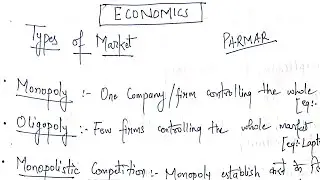 ECONOMICS
Types of Market PARMAR
• Monopoly :- One Company/firm controlling the whole
[eg:-
• Oligopoly :- Few firms controlling the whole market
[eg:- Lapt
• Monopolistic Competition :- Monopoly establish